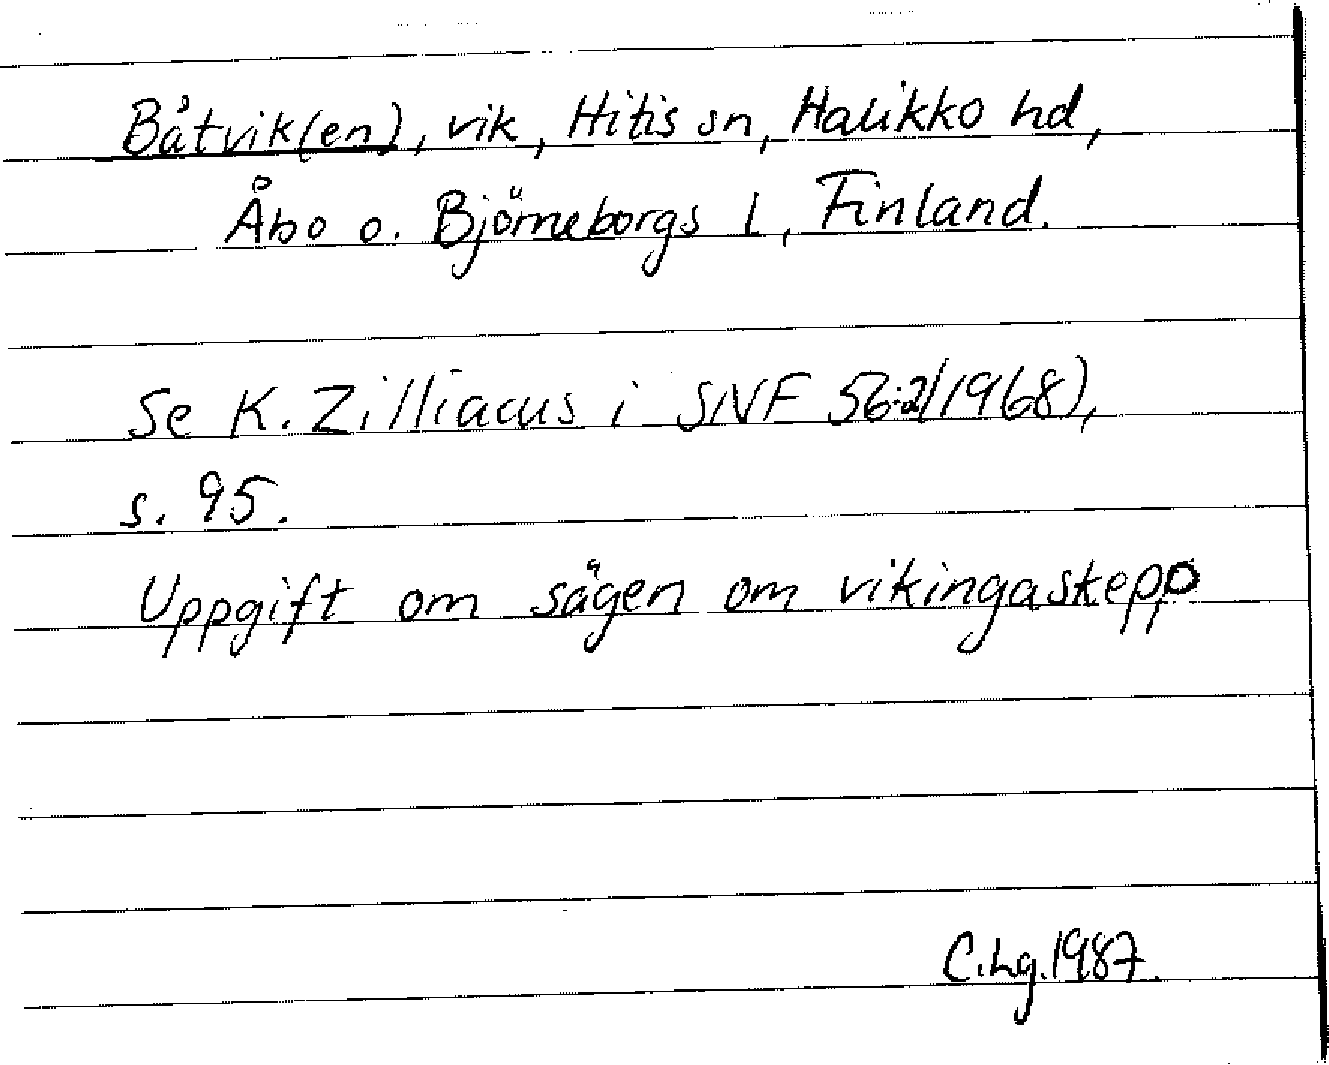 Båtvik(en), vik, Hitis sn, Halikko hd,
Åbo o. Björneborgs l, Finland.
Se K. Zilliacus i SNF 56:2(1968),
s. 95.
Uppgift om sägen om vikingaskepp
C.Lg.1987.